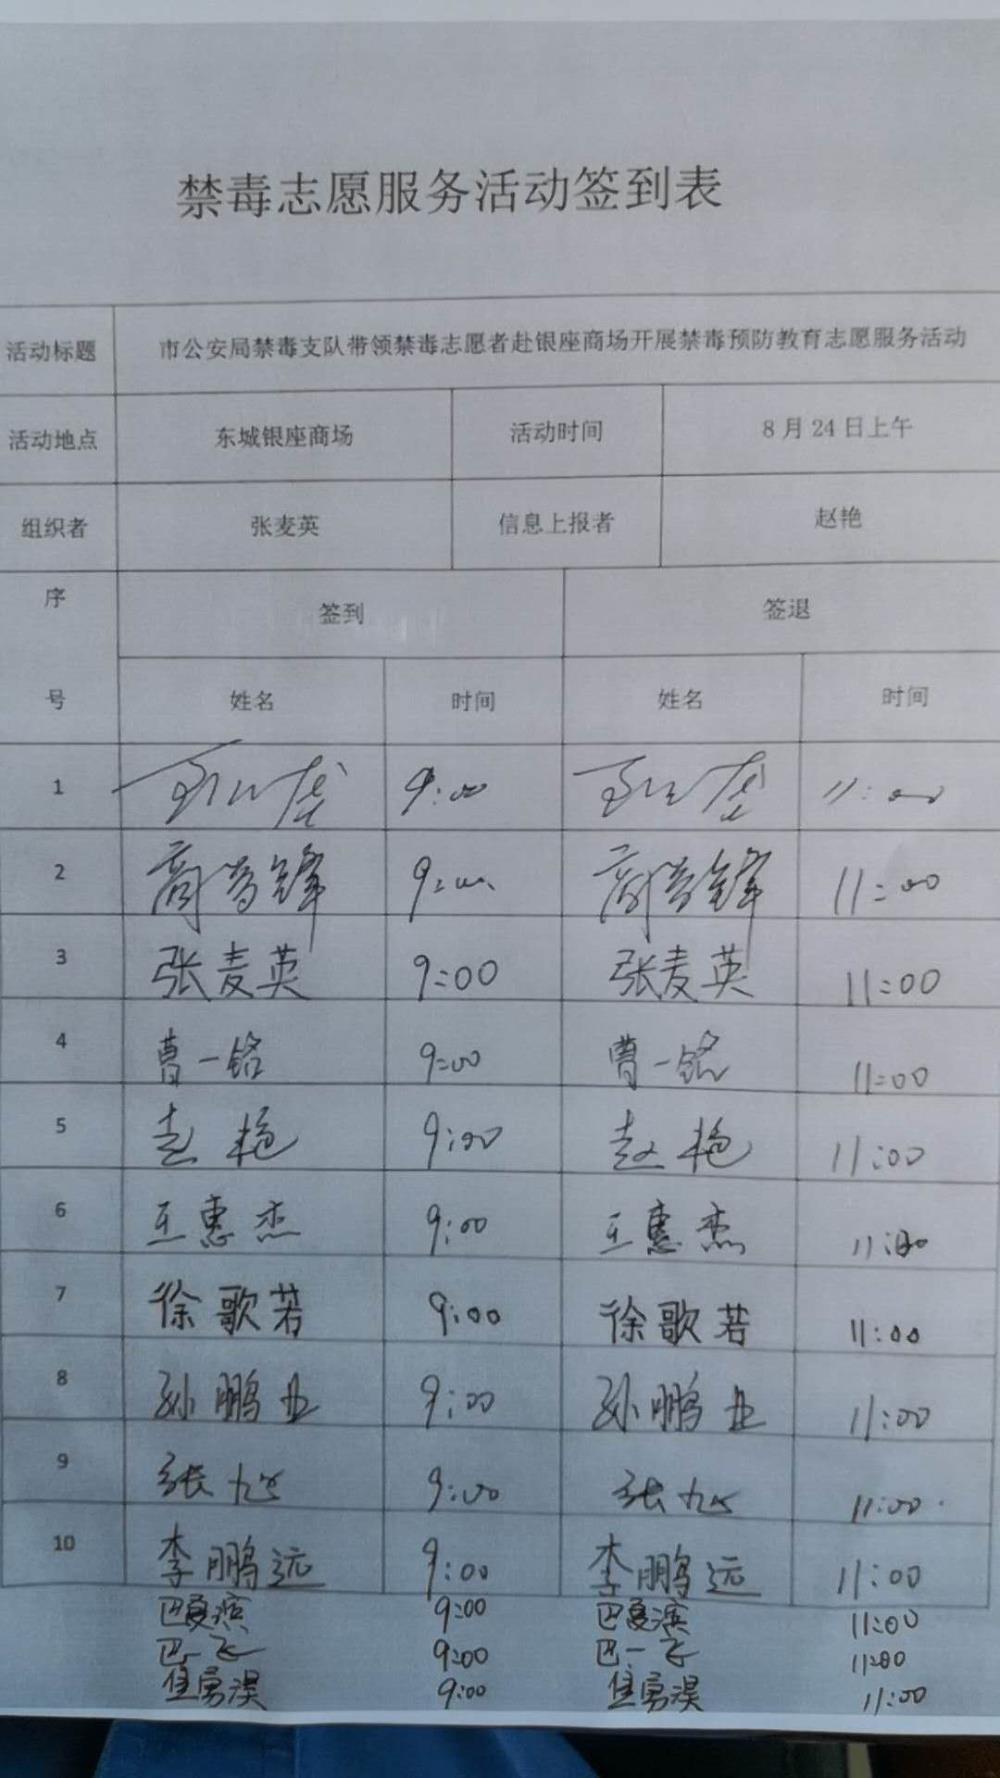 禁毒志愿服务活动签到表
活动标题 市公安局禁毒支队带领禁毒志愿者赴银座商场开展禁毒预防教育志愿服务活动
活动地点 东城银座商场 活动时间 8月24日上午
组织者 张麦英 信息上报者 赵艳
序号 签到 签退
姓名 时间 姓名 时间
1 9:00 11:00
2 9:00 11:00
3 张麦英 9:00 张麦英 11:00
4 曹一铭 9:00 曹一铭 11:00
5 赵艳 9:00 赵艳 11:00
6 王惠杰 9:00 王惠杰 11:00
7 徐歌若 9:00 徐歌若 11:00
8 孙鹏业 9:00 孙鹏业 11:00
9 张旭 9:00 张旭 11:00
10 李鹏远 9:00 李鹏远 11:00
巴夏滨 9:00 巴夏滨 11:00
巴一飞 9:00 巴一飞 11:00
9:00 11:00